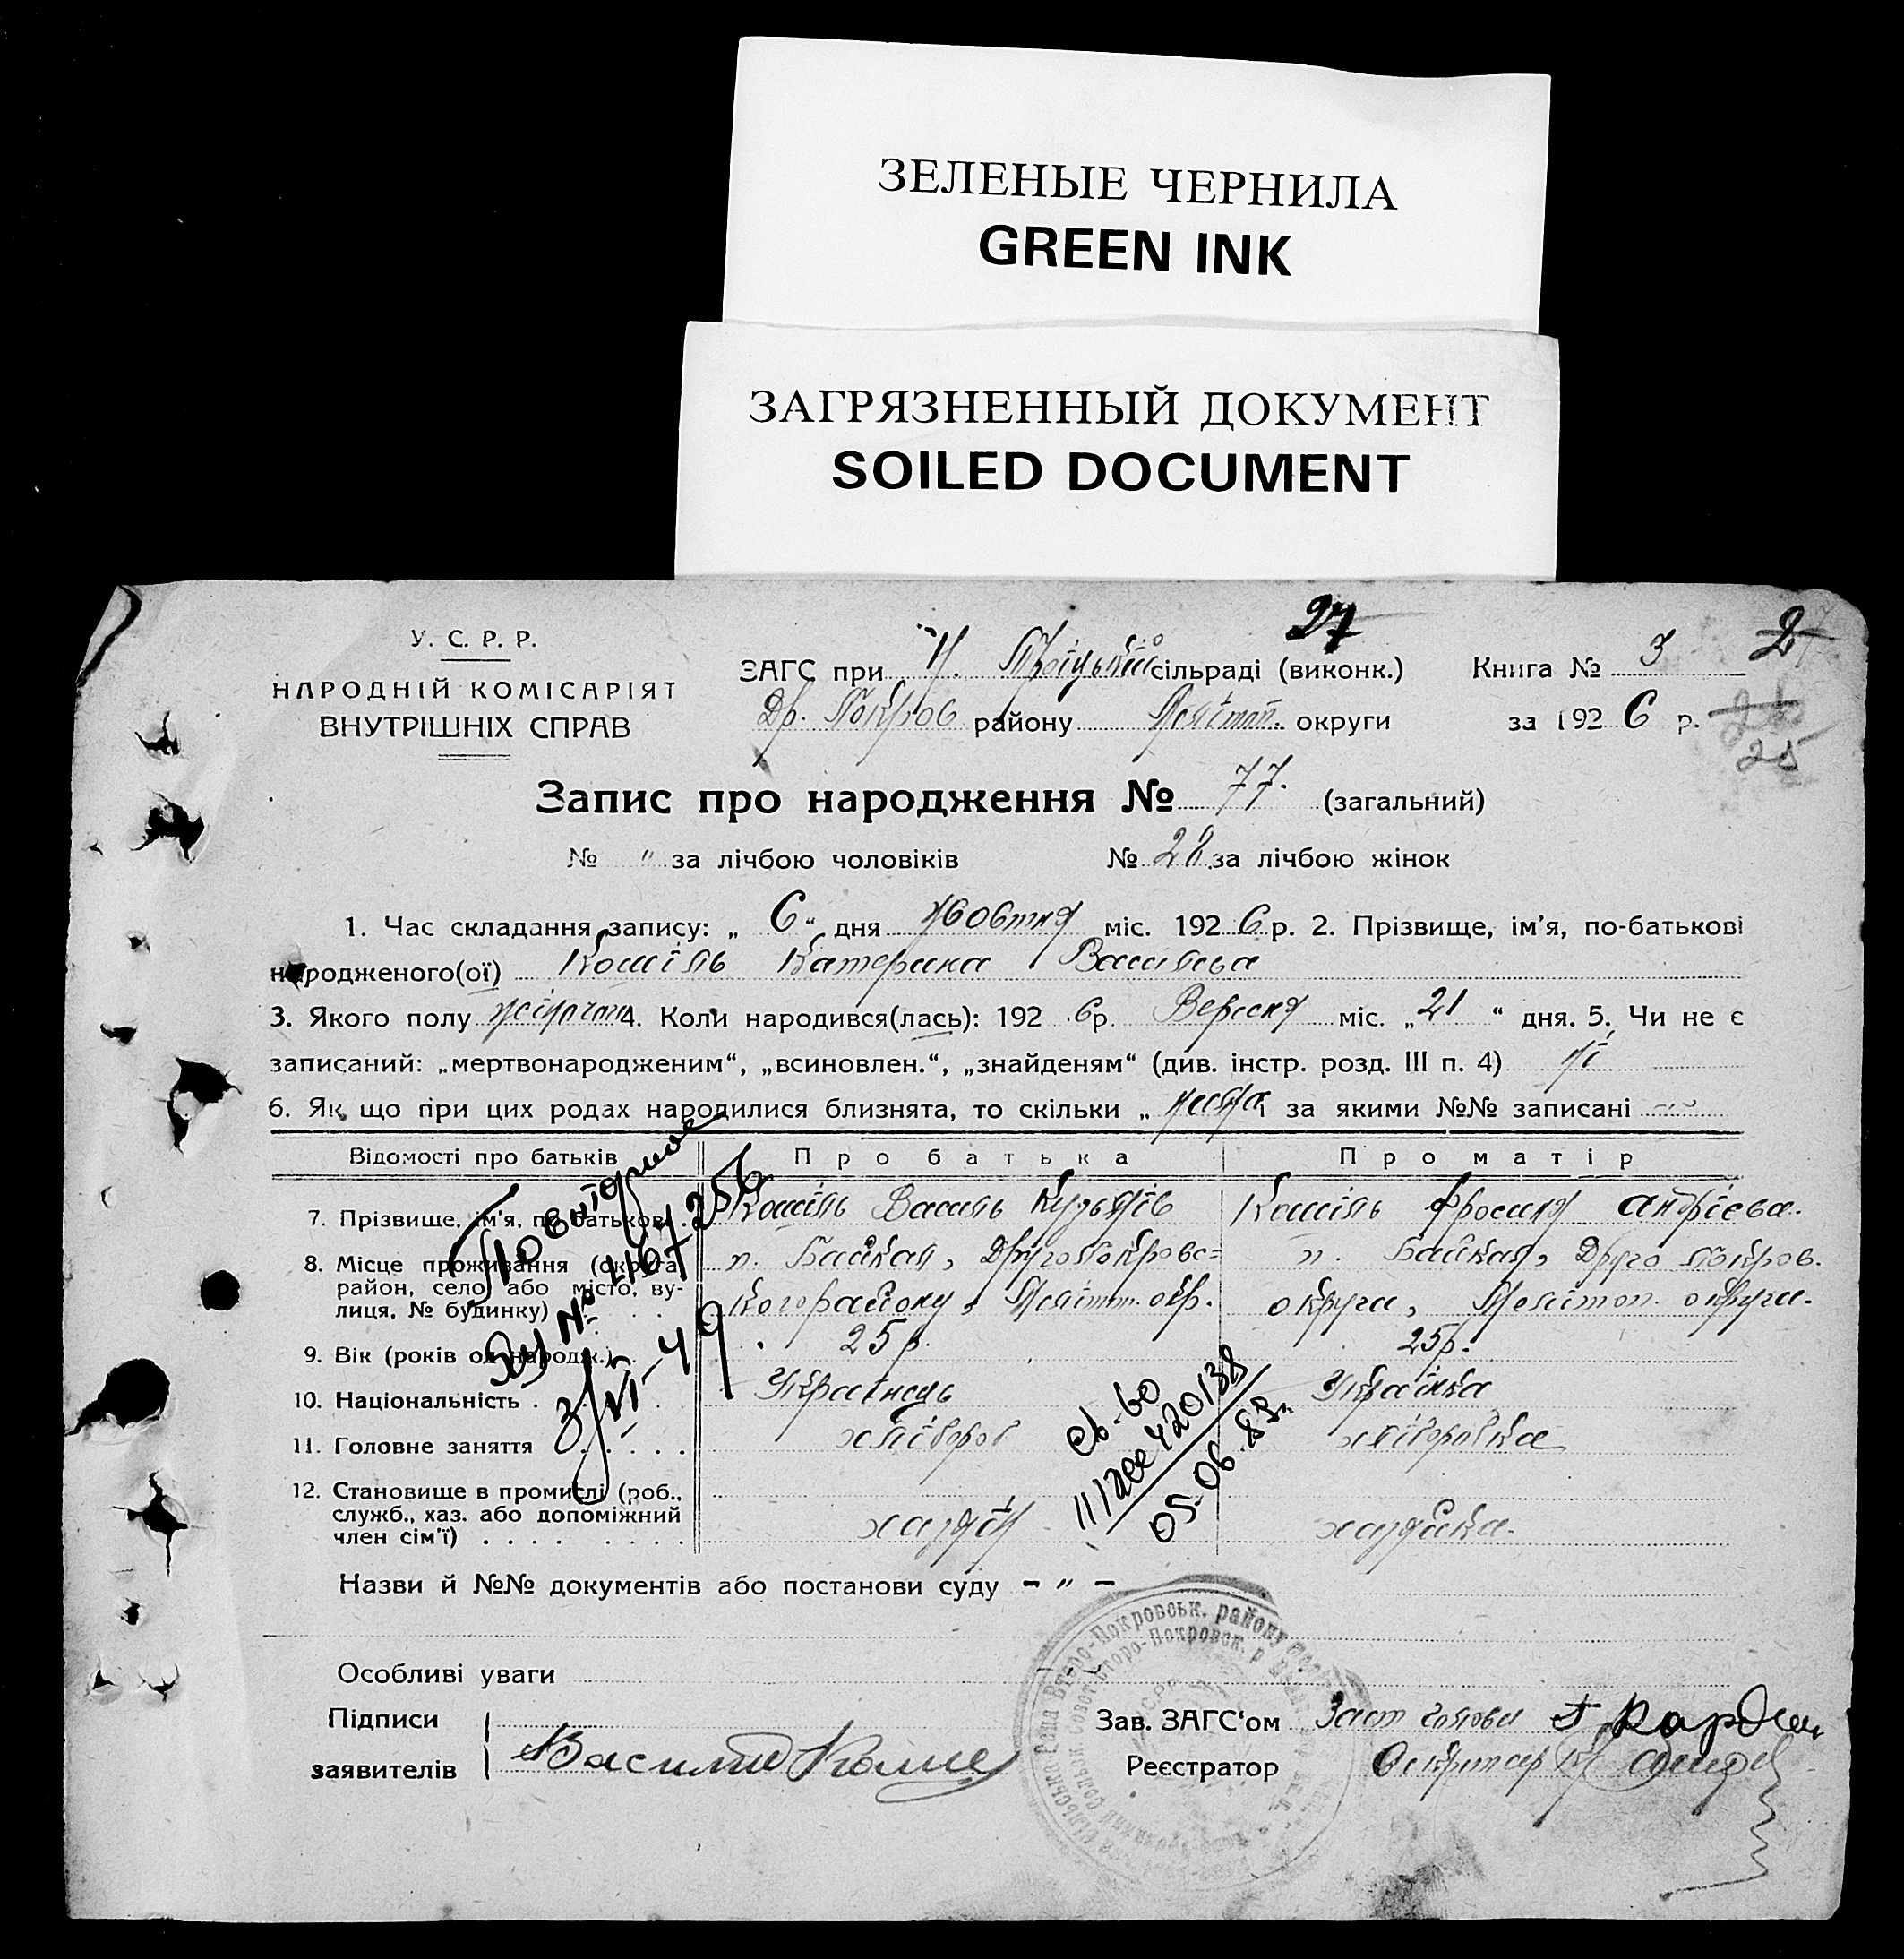 ЗЕЛЕНЫЕ ЧЕРНИЛА
GREEN INK
ЗАГРЯЗНЕННЫЙ ДОКУМЕНТ
SOILED DOCUMENT
27
2
У. С. Р. Р.
НАРОДНІЙ КОМІСАРІЯТ
ВНУТРІШНІХ СПРАВ
ЗАГС при Н. Троіцькій сільраді (виконк.) Книга № 3
Др. Покров району Меліт оп. округи за 1926 р.
25
Запис про народження № 77. (загальний)
№ " за лічбою чоловіків № 28 за лічбою жінок
1. Час складання запису: „ 6 “ дня жовтня міс. 1926 р. 2. Прізвище, ім'я, по-батькові
народженого(ої) Кошіль Катерина Васильва
3. Якого полу жіночої 4. Коли народився(лась): 1926 р. Вересня міс. „ 21 “ дня. 5. Чи не є
записаний: „мертвонародженим“, „всиновлен.“, „знайденям“ (див. інстр. розд. III п. 4) ні
6. Як що при цих родах народилися близнята, то скільки „ за якими №№ записані
Відомості про батьків Про батька Про матір
7. Прізвище, ім'я, по батькові . Кошіль Василь Кузьмів Кошіль Фросина Андрієва.
8. Місце проживання (округа, район, село або місто, вулиця, № будинку) п. Байкал, Другопокровс=
кого району, Меліт оп. окр. п. Байкал, Друго Покров.
округи, Мелітоп. округи.
9. Вік (років од народж.) . 25 р. 25 р.
10. Національність . Українець Українка
11. Головне заняття . . . . . хлібороб хліборобка
12. Становище в промислі (роб., служб., хаз. або допоміжний член сім'ї) . . . . хазяїн хазяйка.
Повторное
№ 2167256
3/VI-49
св-во
05.06.83г.
Назви й №№ документів або постанови суду – " –
Особливі уваги
Підписи
заявителів Василий Коше
Зав. ЗАГС'ом Заст голови
Реєстратор Секритар